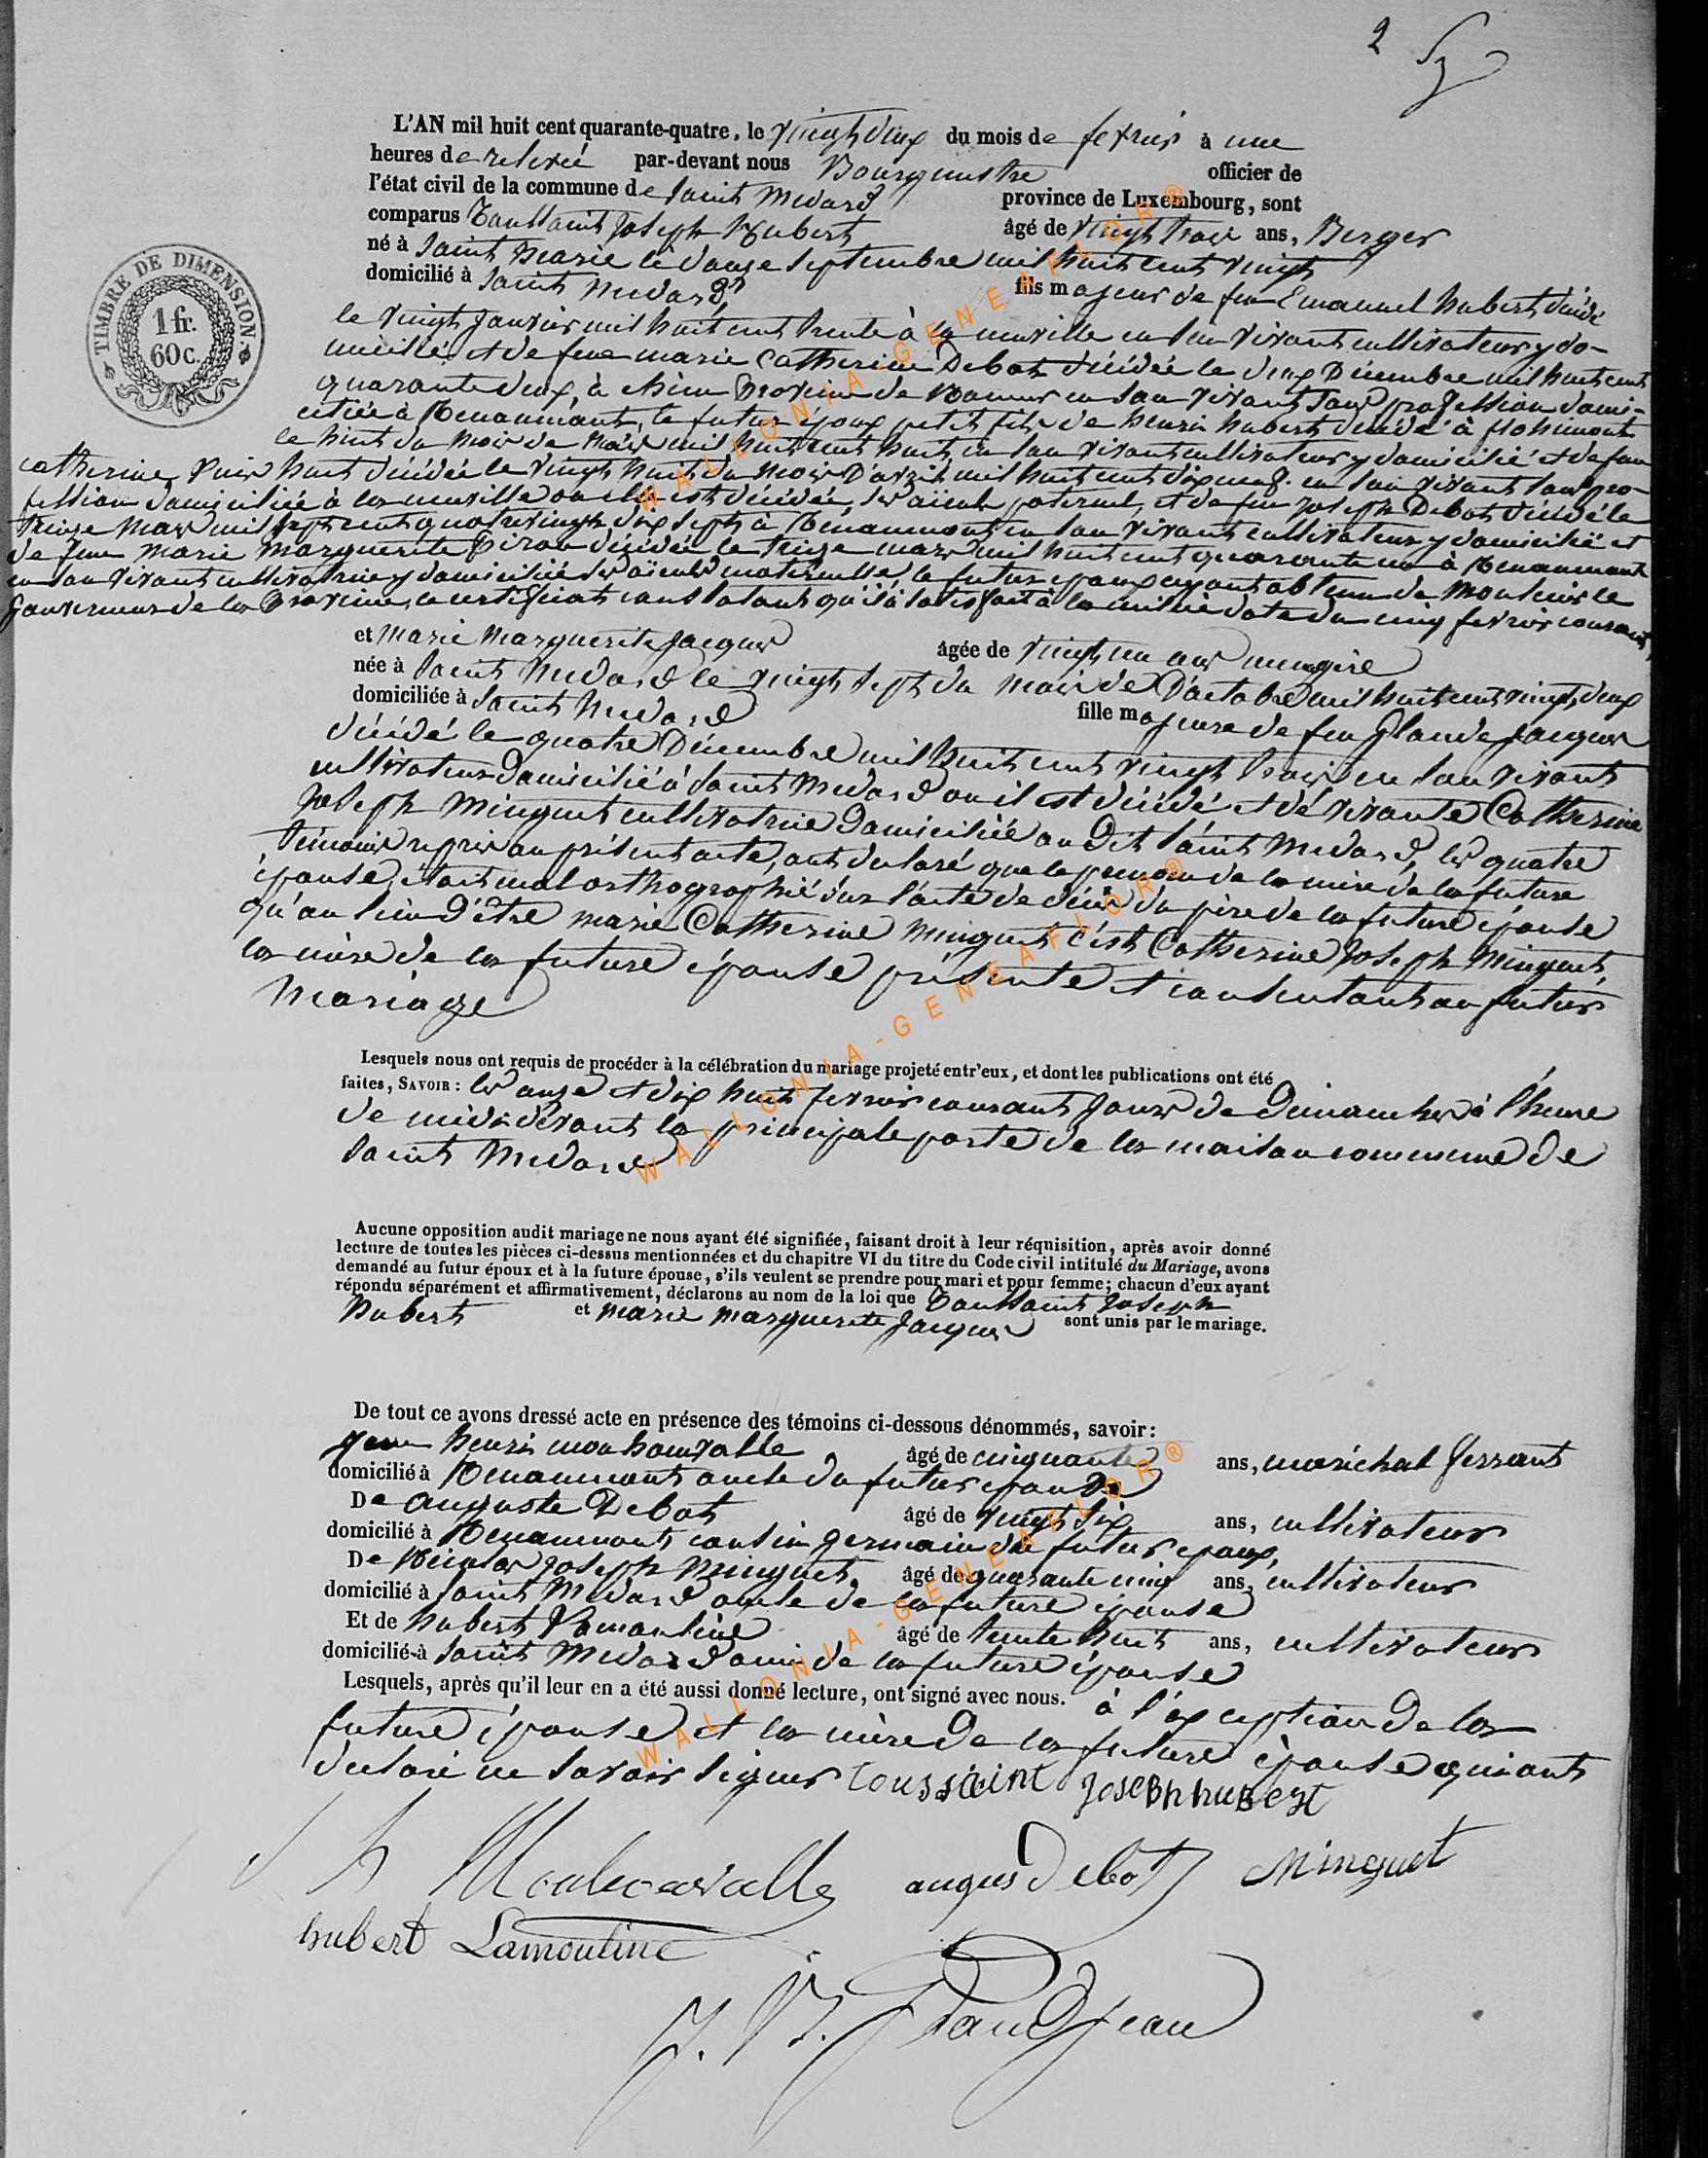 2
L'AN mil huit cent quarante-quatre, le vingt deux du mois de fevrier à une
heures de relevée par-devant nous Bourgmestre officier de
l'état civil de la commune de Saint Medard province de Luxembourg, sont
comparus Toussaint Joseph Hubert âgé de vingt trois ans, Berger
né à Saint Marie le douze Septembre mil huit cent vingt
domicilié à Saint Medard, fils majeur de feu Emanuel hubert décédé
le vingt Janvier mil huit cent trente à la neuville en son vivant cultivateur y do-
micilié et de feue marie Catherine Debot décédée le deux Décembre mil huit cent
quarante deux, à province de Namur en son vivant sans profession domi-
ciliée à Renaumont, le futur époux petit fils de henri hubert décédé à flohimont
le huit du mois de mars mil huit cent huit en son vivant cultivateur y domicilié et de feue
catherine huit décédée le vingt huit du mois D'avril mil huit cent dix neuf. en son vivant sans pro-
fession domiciliée à la neuville ou elle est décédée, ses aïeuls paternel, et de feu Joseph Debot décédé le
treize mars mil sept cent quatre vingt dix sept à Renaumont en son vivant cultivateur y domicilié et
de feue Marie Marguerite Piron décédée le treize mars mil huit cent quarante un à Renaumont
en son vivant cultivatrice y domiciliée ses aïeuls maternelle, le futur époux ayant obtenu de Monsieur le
Gouverneur de la Province, le certificat constatant qu'il a satisfait à la milice date du cinq fevrier courant,
et Marie Marguerite Jacques âgée de vingt un ans menagère
née à Saint Medard le vingt sept du mois de D'octobre mil huit cent vingt deux
domiciliée à Saint Medard fille majeure de feu Glaude Jacques
décédé le quatre Décembre mil huit cent vingt trois en son vivant
cultivateur domicilié à Saint Medard ou il est décédé et de vivante Catherine
Joseph Minguet cultivatrice domiciliée au dit Saint Medard, les quatre
témoins repris au présent acte, ont declaré que le prenom de la mère de la future
épouse, étoit mal orthographié sur l'acte de décès du père de la future épouse
qu'au lieu d'être marie Catherine Minguet c'est Catherine Joseph Minguet,
la mère de la future épouse présente et consentant au futur
Mariage
Lesquels nous ont requis de procéder à la célébration du mariage projeté entr'eux, et dont les publications ont été
faites, SAVOIR: les onze et dix huit fevrier courant jours de Dimanches à l'heure
de midi devant la principale porte de la maison commune de
Saint Medard
Aucune opposition audit mariage ne nous ayant été signifiée, faisant droit à leur réquisition, après avoir donné
lecture de toutes les pièces ci-dessus mentionnées et du chapitre VI du titre du Code civil intitulé du Mariage, avons
demandé au futur époux et à la future épouse, s'ils veulent se prendre pour mari et pour femme; chacun d'eux ayant
répondu séparément et affirmativement, déclarons au nom de la loi que Toussaint Joseph
hubert et Marie Marguerite Jacques sont unis par le mariage.
De tout ce avons dressé acte en présence des témoins ci-dessous dénommés, savoir:
henri âgé de cinquante ans, maréchal ferrant
domicilié à Renaumont oncle du futur époux
De Auguste Debot âgé de vingt six ans, cultivateur
domicilié à Renaumont cousin germain du futur epoux,
De Nicolas Joseph Minguet, âgé de quarante cinq ans, cultivateur
domicilié à Saint Medard oncle de la future épouse
Et de hubert Lamouline âgé de trente huit ans, cultivateur
domicilié à Saint Medard ami de la future épouse
Lesquels, après qu'il leur en a été aussi donné lecture, ont signé avec nous. à l'exception de la
future épouse et la mère de la future épouse qui ont
declaré ne savoir signer toussaint Joseph hubert
augus Debot Minguet
hubert Lamouline
TIMBRE DE DIMENSION.
1 fr.
60 c.
WALLONIA-GENEAFLOR®
WALLONIA-GENEAFLOR®
WALLONIA-GENEAFLOR®